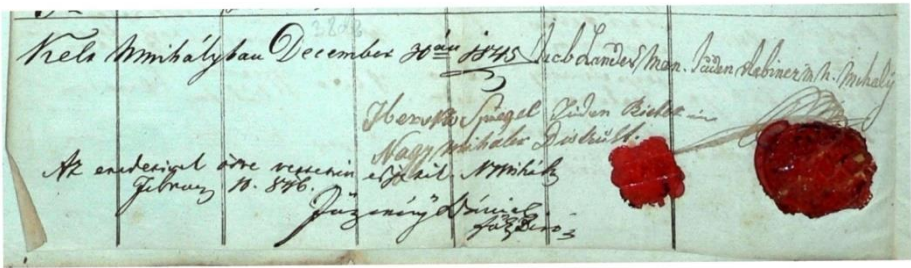 Kelt NMihályban December 30án 1845 Jacob Landesman. Juden Rabiner in N. Mihaly
Hersko Spiegel Juden Richter in
Nagy Mihaler Distrikt.
Az eredetivel össve vetettem NMihály
Februar 10. 846.
Dániel